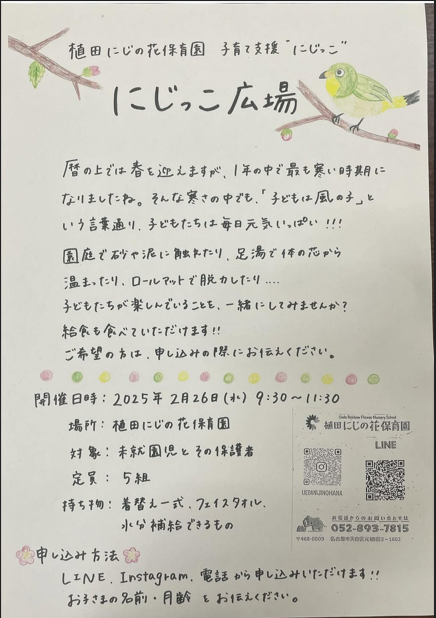 植田にじの花保育園 子育て支援"にじっこ"
にじっこ広場
暦の上では春を迎えますが、1年の中で最も寒い時期に
なりましたね。そんな寒さの中でも、「子どもは風の子」と
いう言葉通り、子どもたちは毎日元気いっぱい!!!
園庭で砂や泥に触れたり、足湯で体の芯から
温まったり、ロールマットで脱力したり....
子どもたちが楽しんでいることを、一緒にしてみませんか?
給食も食べていただけます!!
ご希望の方は、申し込みの際にお伝えください。
開催日時:2025年2月26日(水) 9:30~11:30
場所:植田にじの花保育園
対象:未就園児とその保護者
定員:5組
持ち物:着替え一式、フェイスタオル、
水分補給できるもの
Ueda Nijinohana Nursery School
植田にじの花保育園
LINE
UEDANIJINOHANA
お電話からのお問い合わせは
052-893-7815
〒468-0009 名古屋市天白区元植田2-1602
申し込み方法
LINE、Instagram、電話から申し込みいただけます!!
お子さまの名前・月齢をお伝えください。